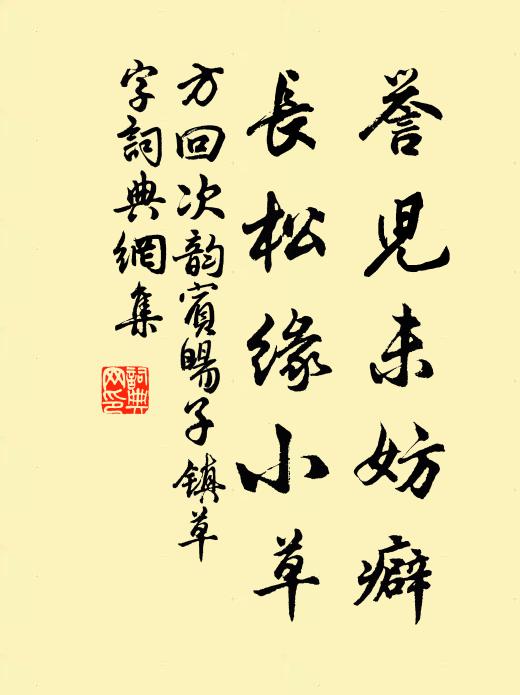 譽児未妨癖
長松緣小草
方回次韵賓暘子鎮草
字詞典網集
詞典
网印